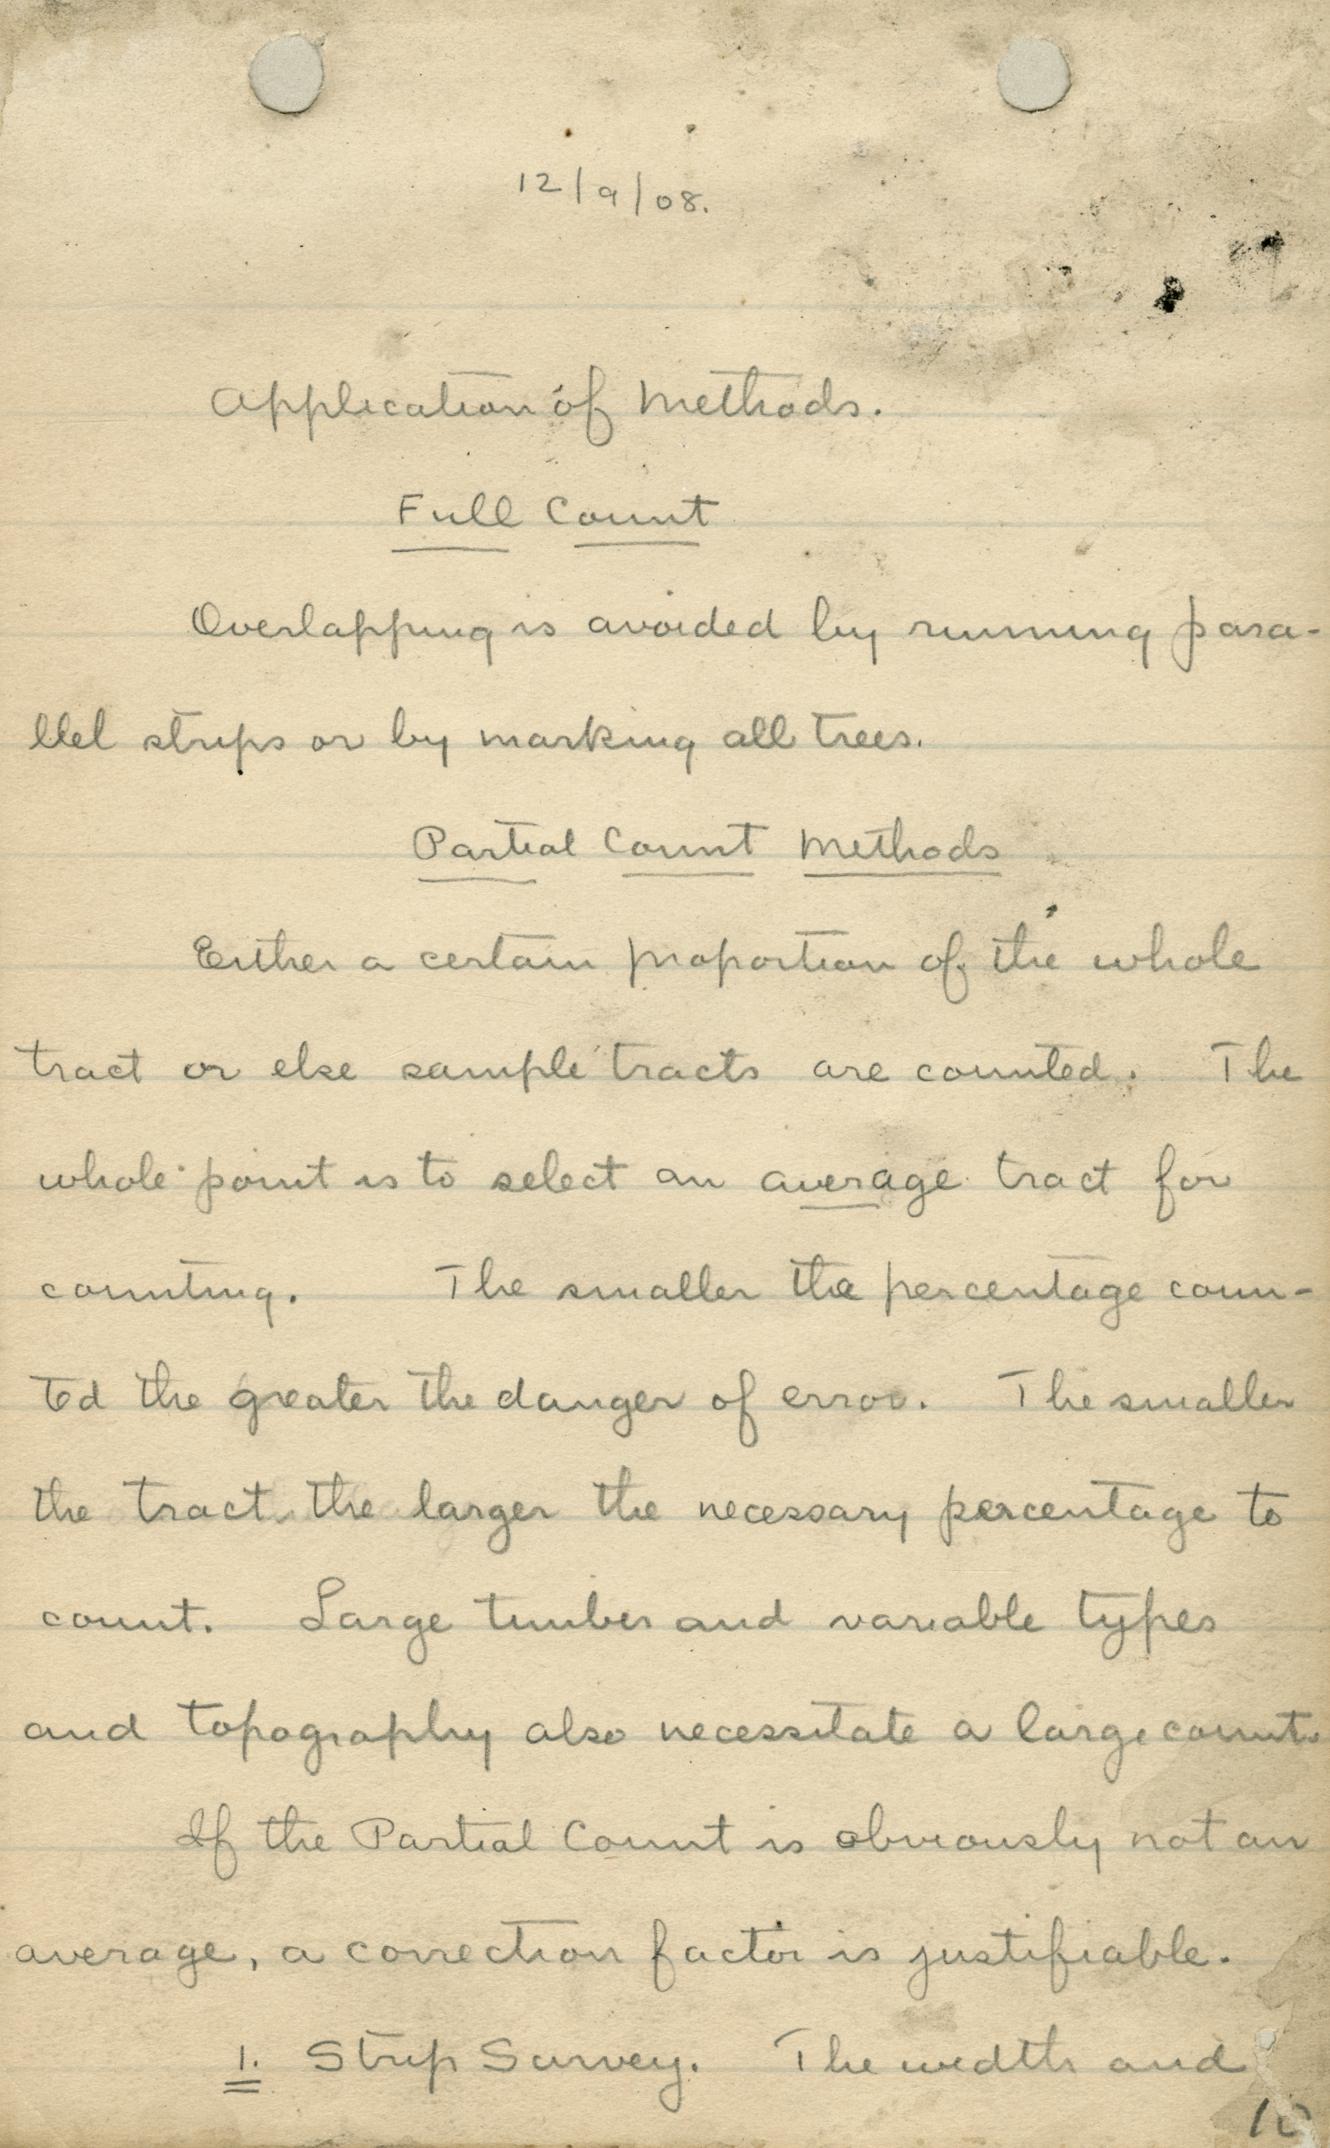 12/9/08.
Application of Methods.
Full Count
Overlapping is avoided by running para-
llel strips or by marking all trees.
Partial Count Methods
Either a certain proportion of the whole
tract or else sample tracts are counted. The
whole point is to select an average tract for
counting. The smaller the percentage coun-
ted the greater the danger of error. The smaller
the tract the larger the necessary percentage to
count. Large timber and variable types
and topography also necessitate a large count.
If the Partial Count is obviously not an
average, a correction factor is justifiable.
1. Strip Survey. The width and
10